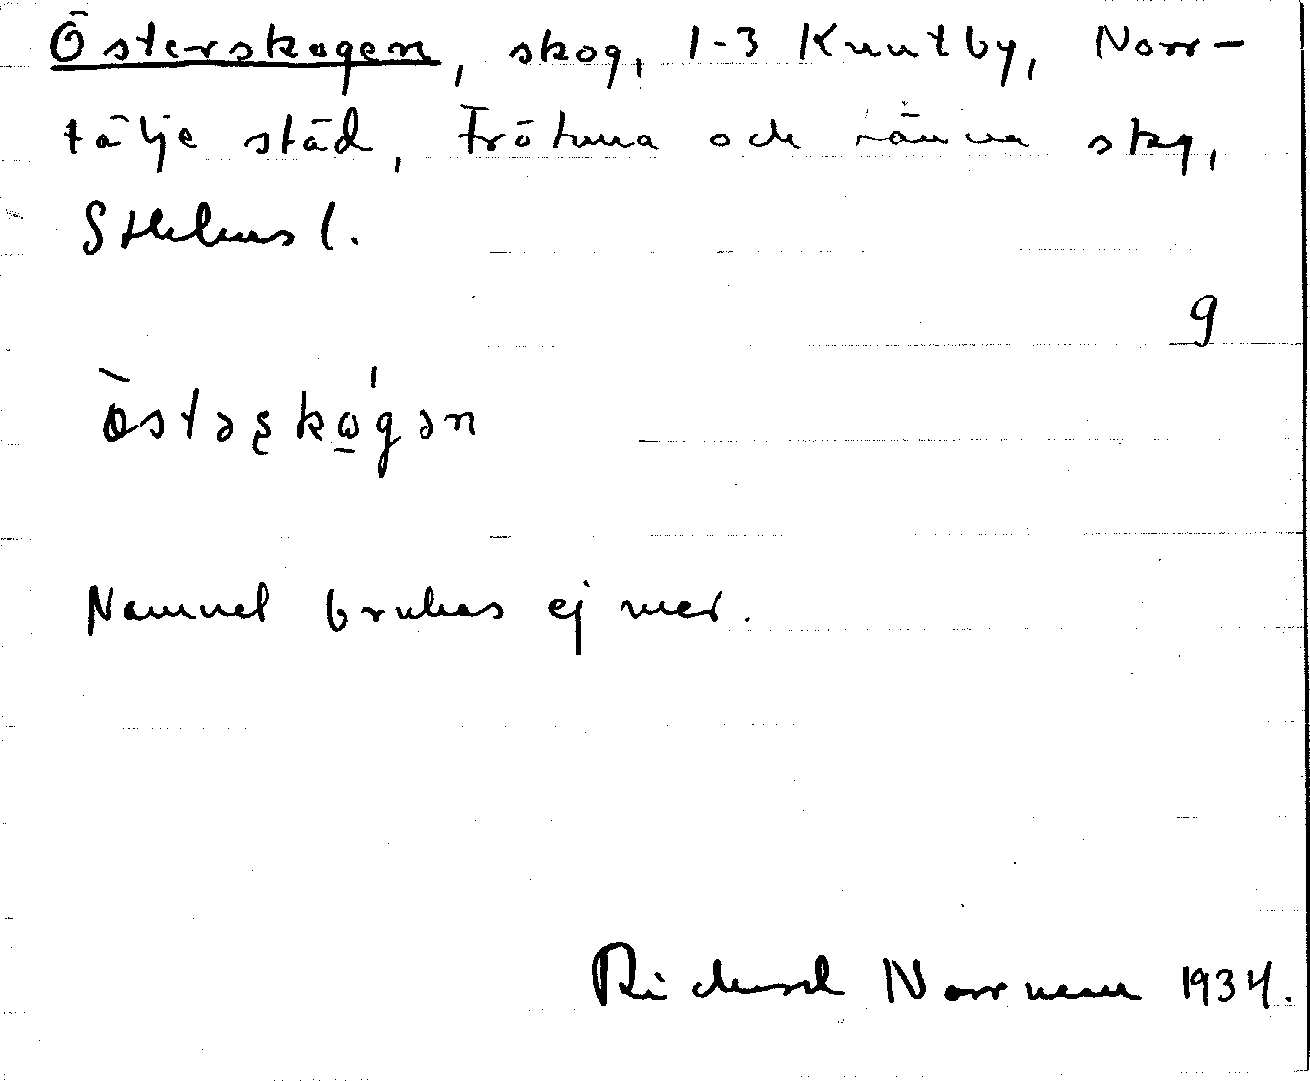 Österskogen, skog, 1-3 Knutby, Norr-
tälje städ, Frötuna och Länna skg,
Sthlms l.
9
ò̀staʂkώ̲gən
Namnet brukas ej mer.
Richard Norrman 1934.